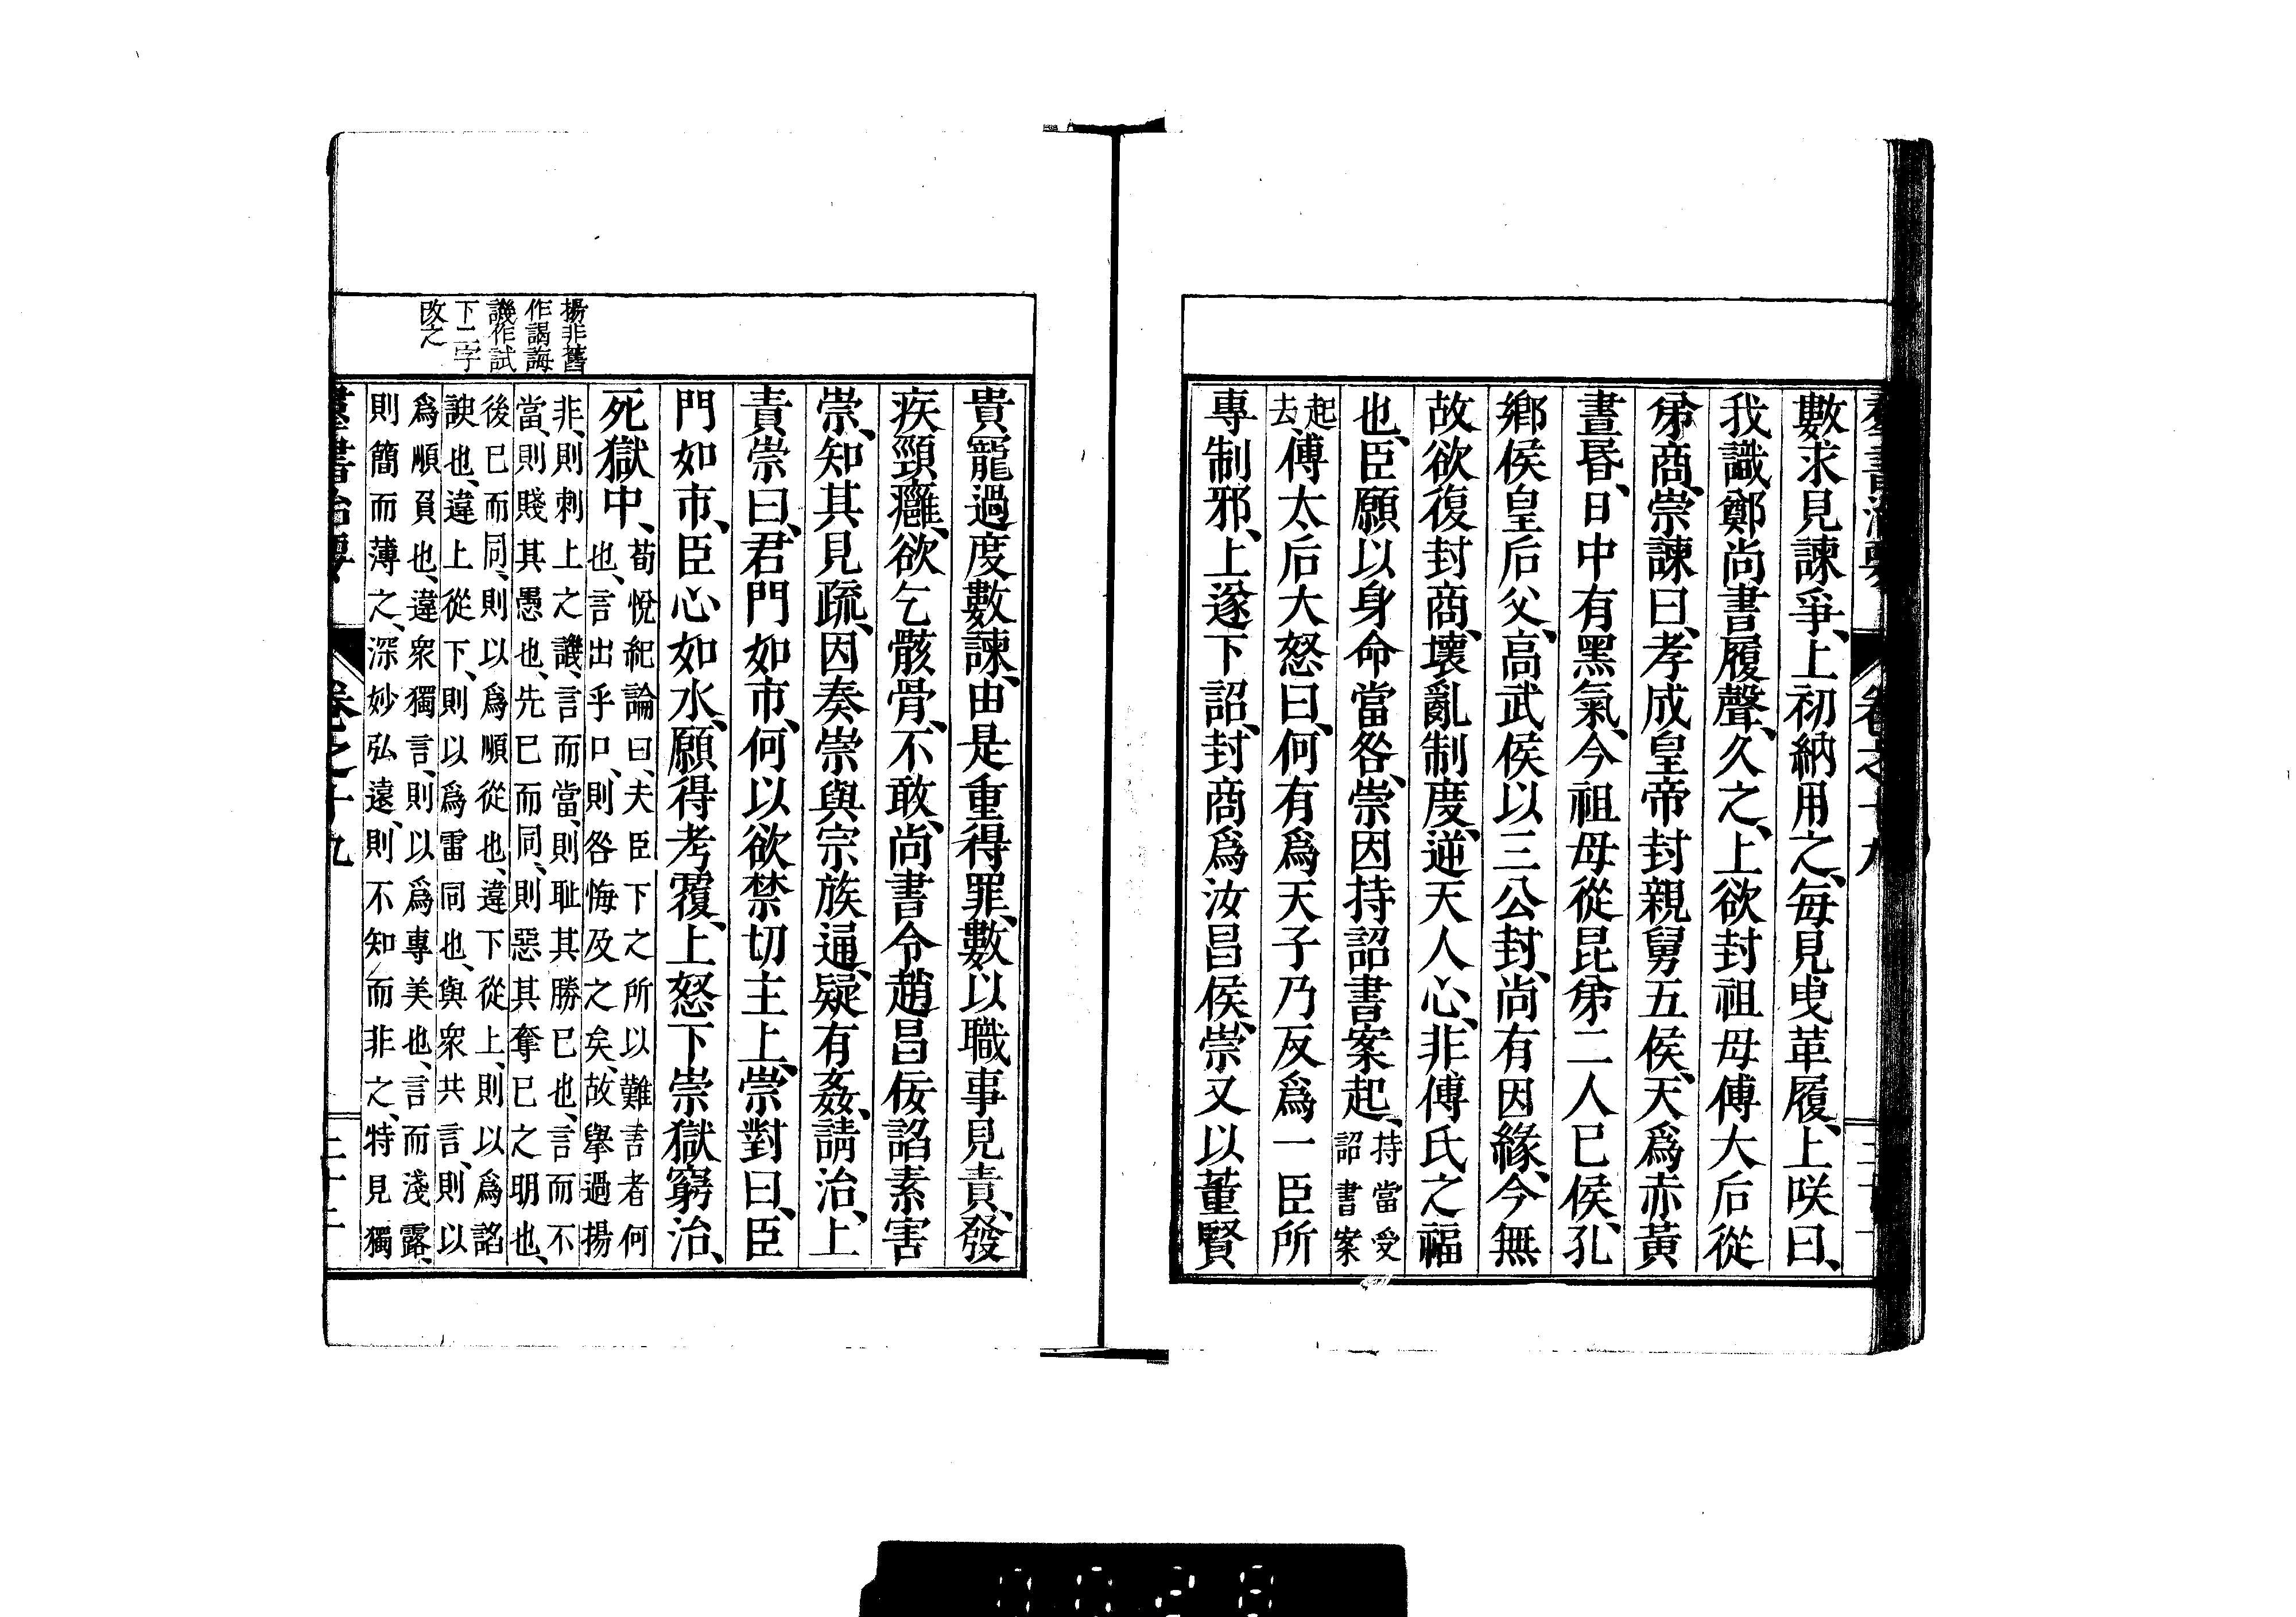 羣書治要 卷之十九
數求見諫爭、上初納用之、每見曳革履、上咲曰、
我識鄭尚書履聲、久之、上欲封祖母傅大后從
弟商、崇諫曰、孝成皇帝封親舅五侯、天爲赤黃
晝昬、日中有黑氣、今祖母從昆弟二人已侯、孔
鄕侯皇后父、高武侯以三公封、尚有因緣、今無
故欲復封商、壞亂制度、逆天人心、非傅氏之福
也、臣願以身命當咎、崇因持詔書案起、持當受
詔書案
起
去、傅太后大怒曰、何有爲天子乃反爲一臣所
專制邪、上遂下詔、封商爲汝昌侯、崇又以董賢
貴寵過度數諫、由是重得罪、數以職事見責、發
疾頸癰、欲乞骸骨、不敢、尚書令趙昌佞諂素害
崇、知其見疏、因奏崇與宗族通、疑有姦、請治、上
責崇曰、君門如市、何以欲禁切主上、崇對曰、臣
門如市、臣心如水、願得考覆、上怒下崇獄窮治、
死獄中、荀悅紀論曰、夫臣下之所以難言者何
也、言出乎口、則咎悔及之矣、故擧過揚
非、則刺上之譏、言而當、則耻其勝已也、言而不
當、則賤其愚也、先已而同、則惡其奪已之明也、
後已而同、則以爲順從也、違下從上、則以爲諂
諛也、違上從下、則以爲雷同也、與衆共言、則以
爲順負也、違衆獨言、則以爲專美也、言而淺露、
則簡而薄之、深妙弘遠、則不知而非之、特見獨
揚非舊
作謁誨
譏作試
下二字
改之
羣書治要 卷之十九